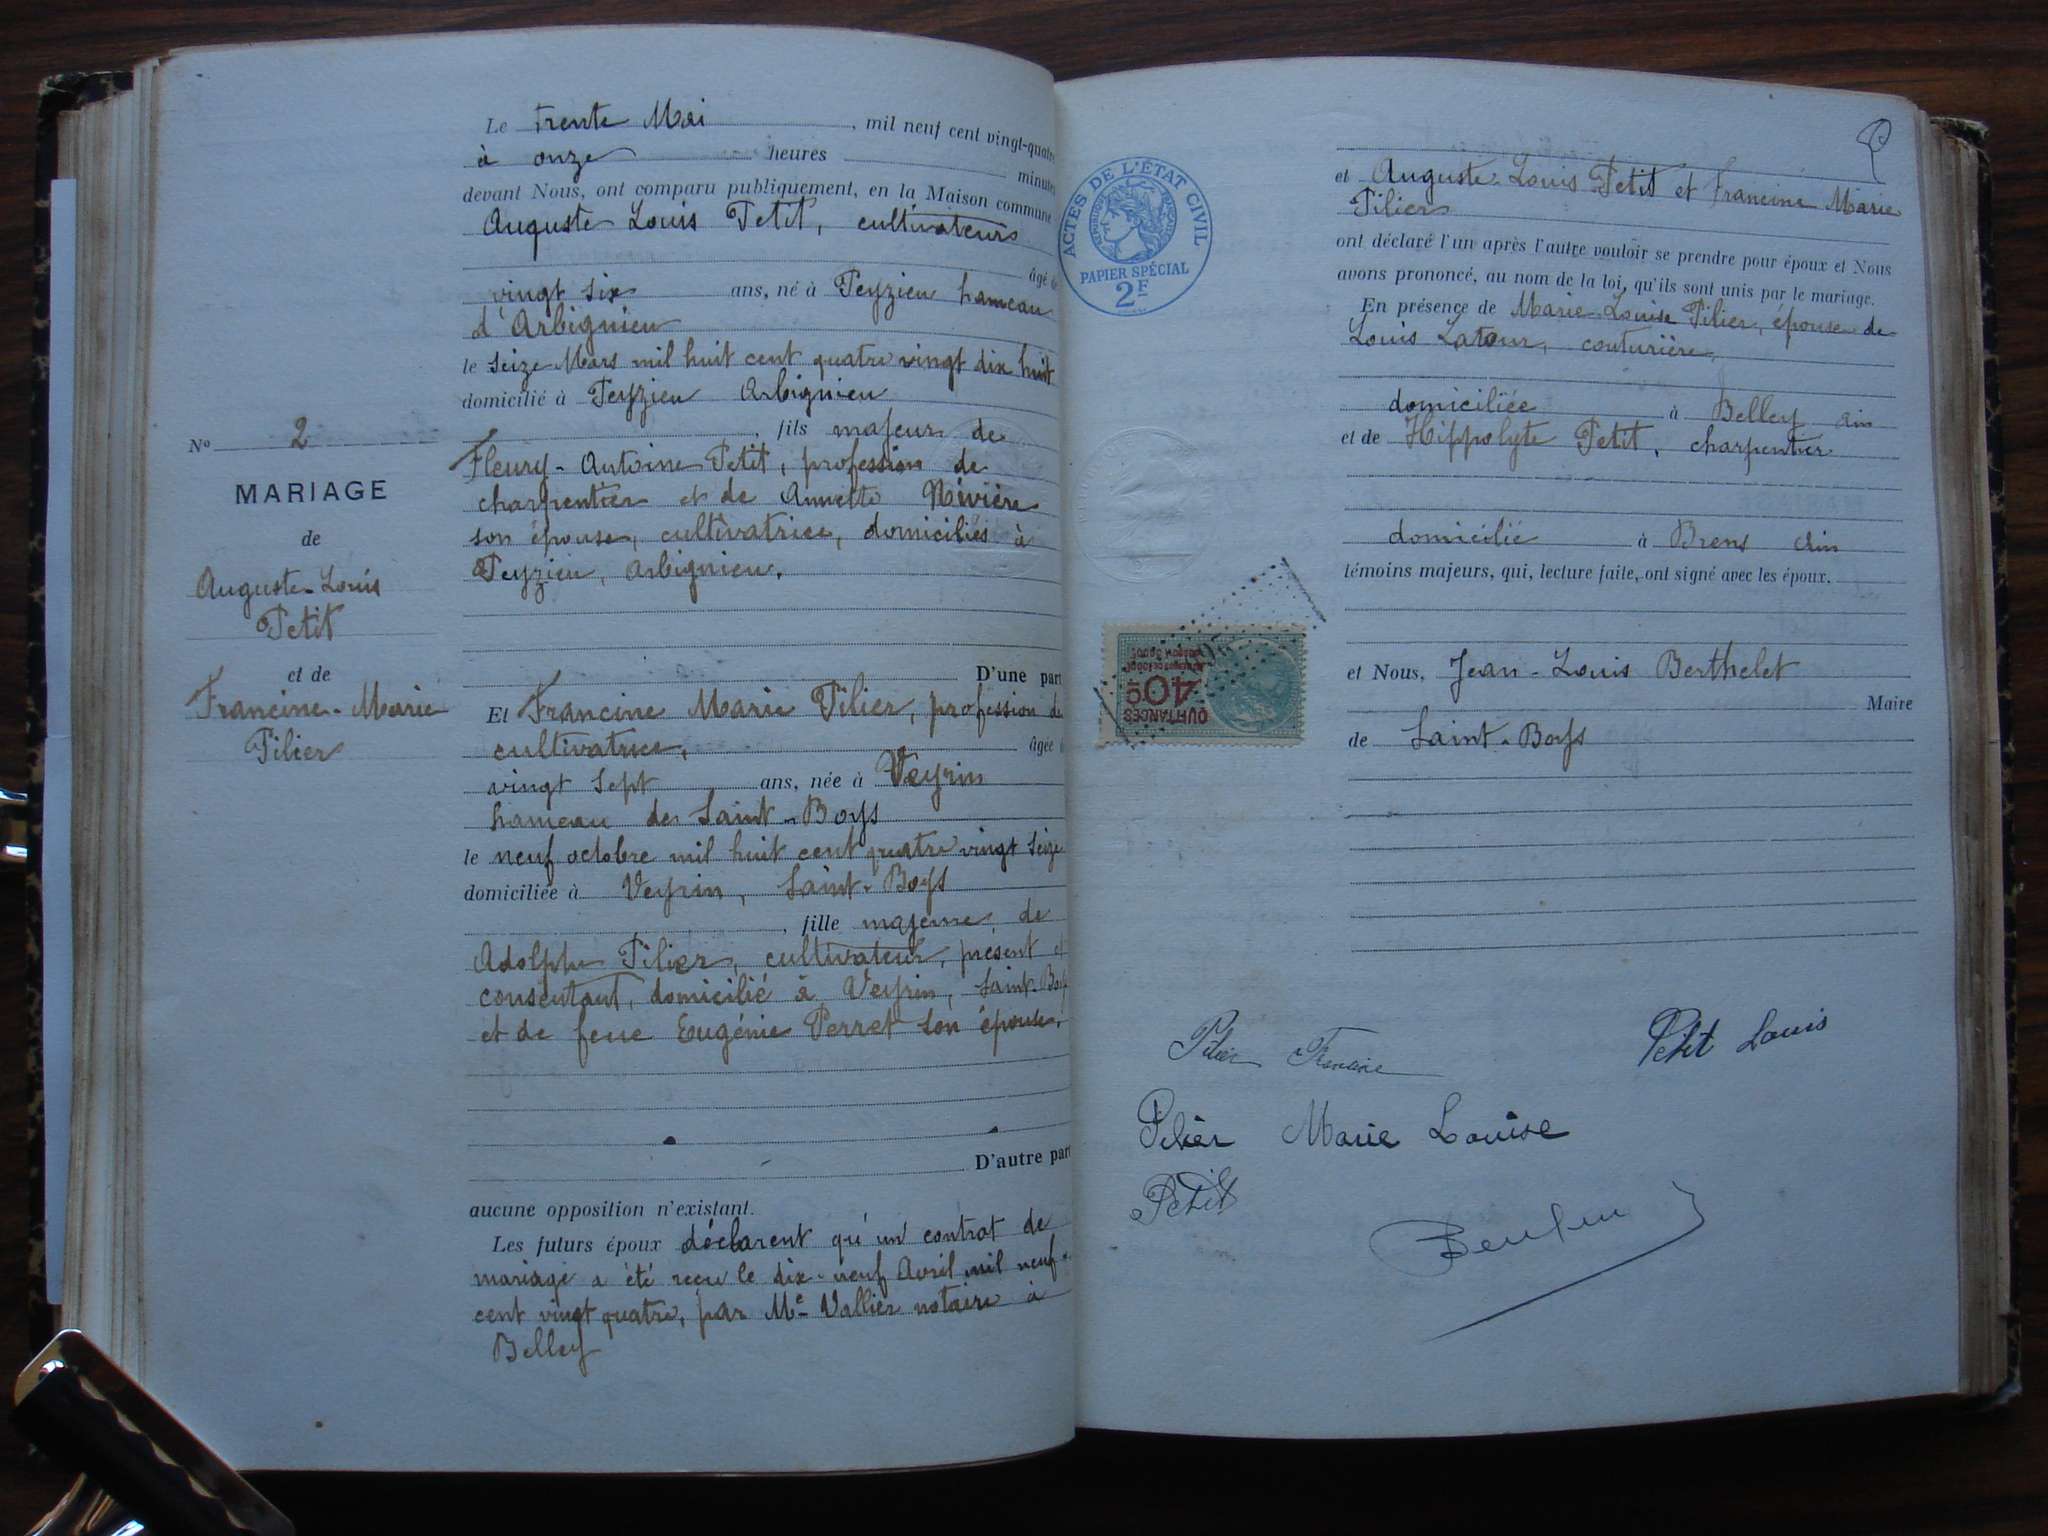 Le trente Mai, mil neuf cent vingt-quatre
à onze heures minutes
devant Nous, ont comparu publiquement, en la Maison commune
Auguste Louis Petit, cultivateur
âgé de
vingt six ans, né à Peyzieu hameau
d'Arbignieu
le seize Mars mil huit cent quatre vingt dix huit
domicilié à Peyzieu Arbignieu
, fils majeur de
Fleury-Antoine Petit, profession de
charpentier et de Annette Nivière
son épouse, cultivatrice, domiciliés à
Peyzieu, Arbignieu.
D'une part
Et Francine Marie Pilier, profession de
cultivatrice, âgée
vingt sept ans, née à Veyrin
hameau de Saint-Boys
le neuf octobre mil huit cent quatre vingt seize
domiciliée à Veyrin, Saint-Boys
, fille majeure de
Adolphe Pilier, cultivateur, présent et
consentant, domicilié à Veyrin, Saint-Boys
et de feue Eugénie Perret son épouse.
D'autre part
aucune opposition n'existant.
Les futurs époux déclarent qu'un contrat de
mariage a été reçu le dix-neuf Avril mil neuf
cent vingt quatre, par Me Vallier notaire à
Belley
No 2
MARIAGE
de
Auguste-Louis
Petit
et de
Francine-Marie
Pilier
ACTES DE L'ÉTAT CIVIL
RÉPUBLIQUE FRANÇAISE
PAPIER SPÉCIAL
2F
et Auguste-Louis Petit et Francine Marie
Pilier
ont déclaré l'un après l'autre vouloir se prendre pour époux et Nous
avons prononcé, au nom de la loi, qu'ils sont unis par le mariage.
En présence de Marie-Louise Pilier, épouse de
Louis Latour, couturière,
domiciliée à Belley Ain
et de Hippolyte Petit, charpentier
domicilié à Brens Ain
témoins majeurs, qui, lecture faite, ont signé avec les époux.
et Nous, Jean-Louis Berthelet
Maire
de Saint-Boys
QUITTANCES
40c
Pilier Francine
Petit Louis
Pilier Marie Louise
Petit